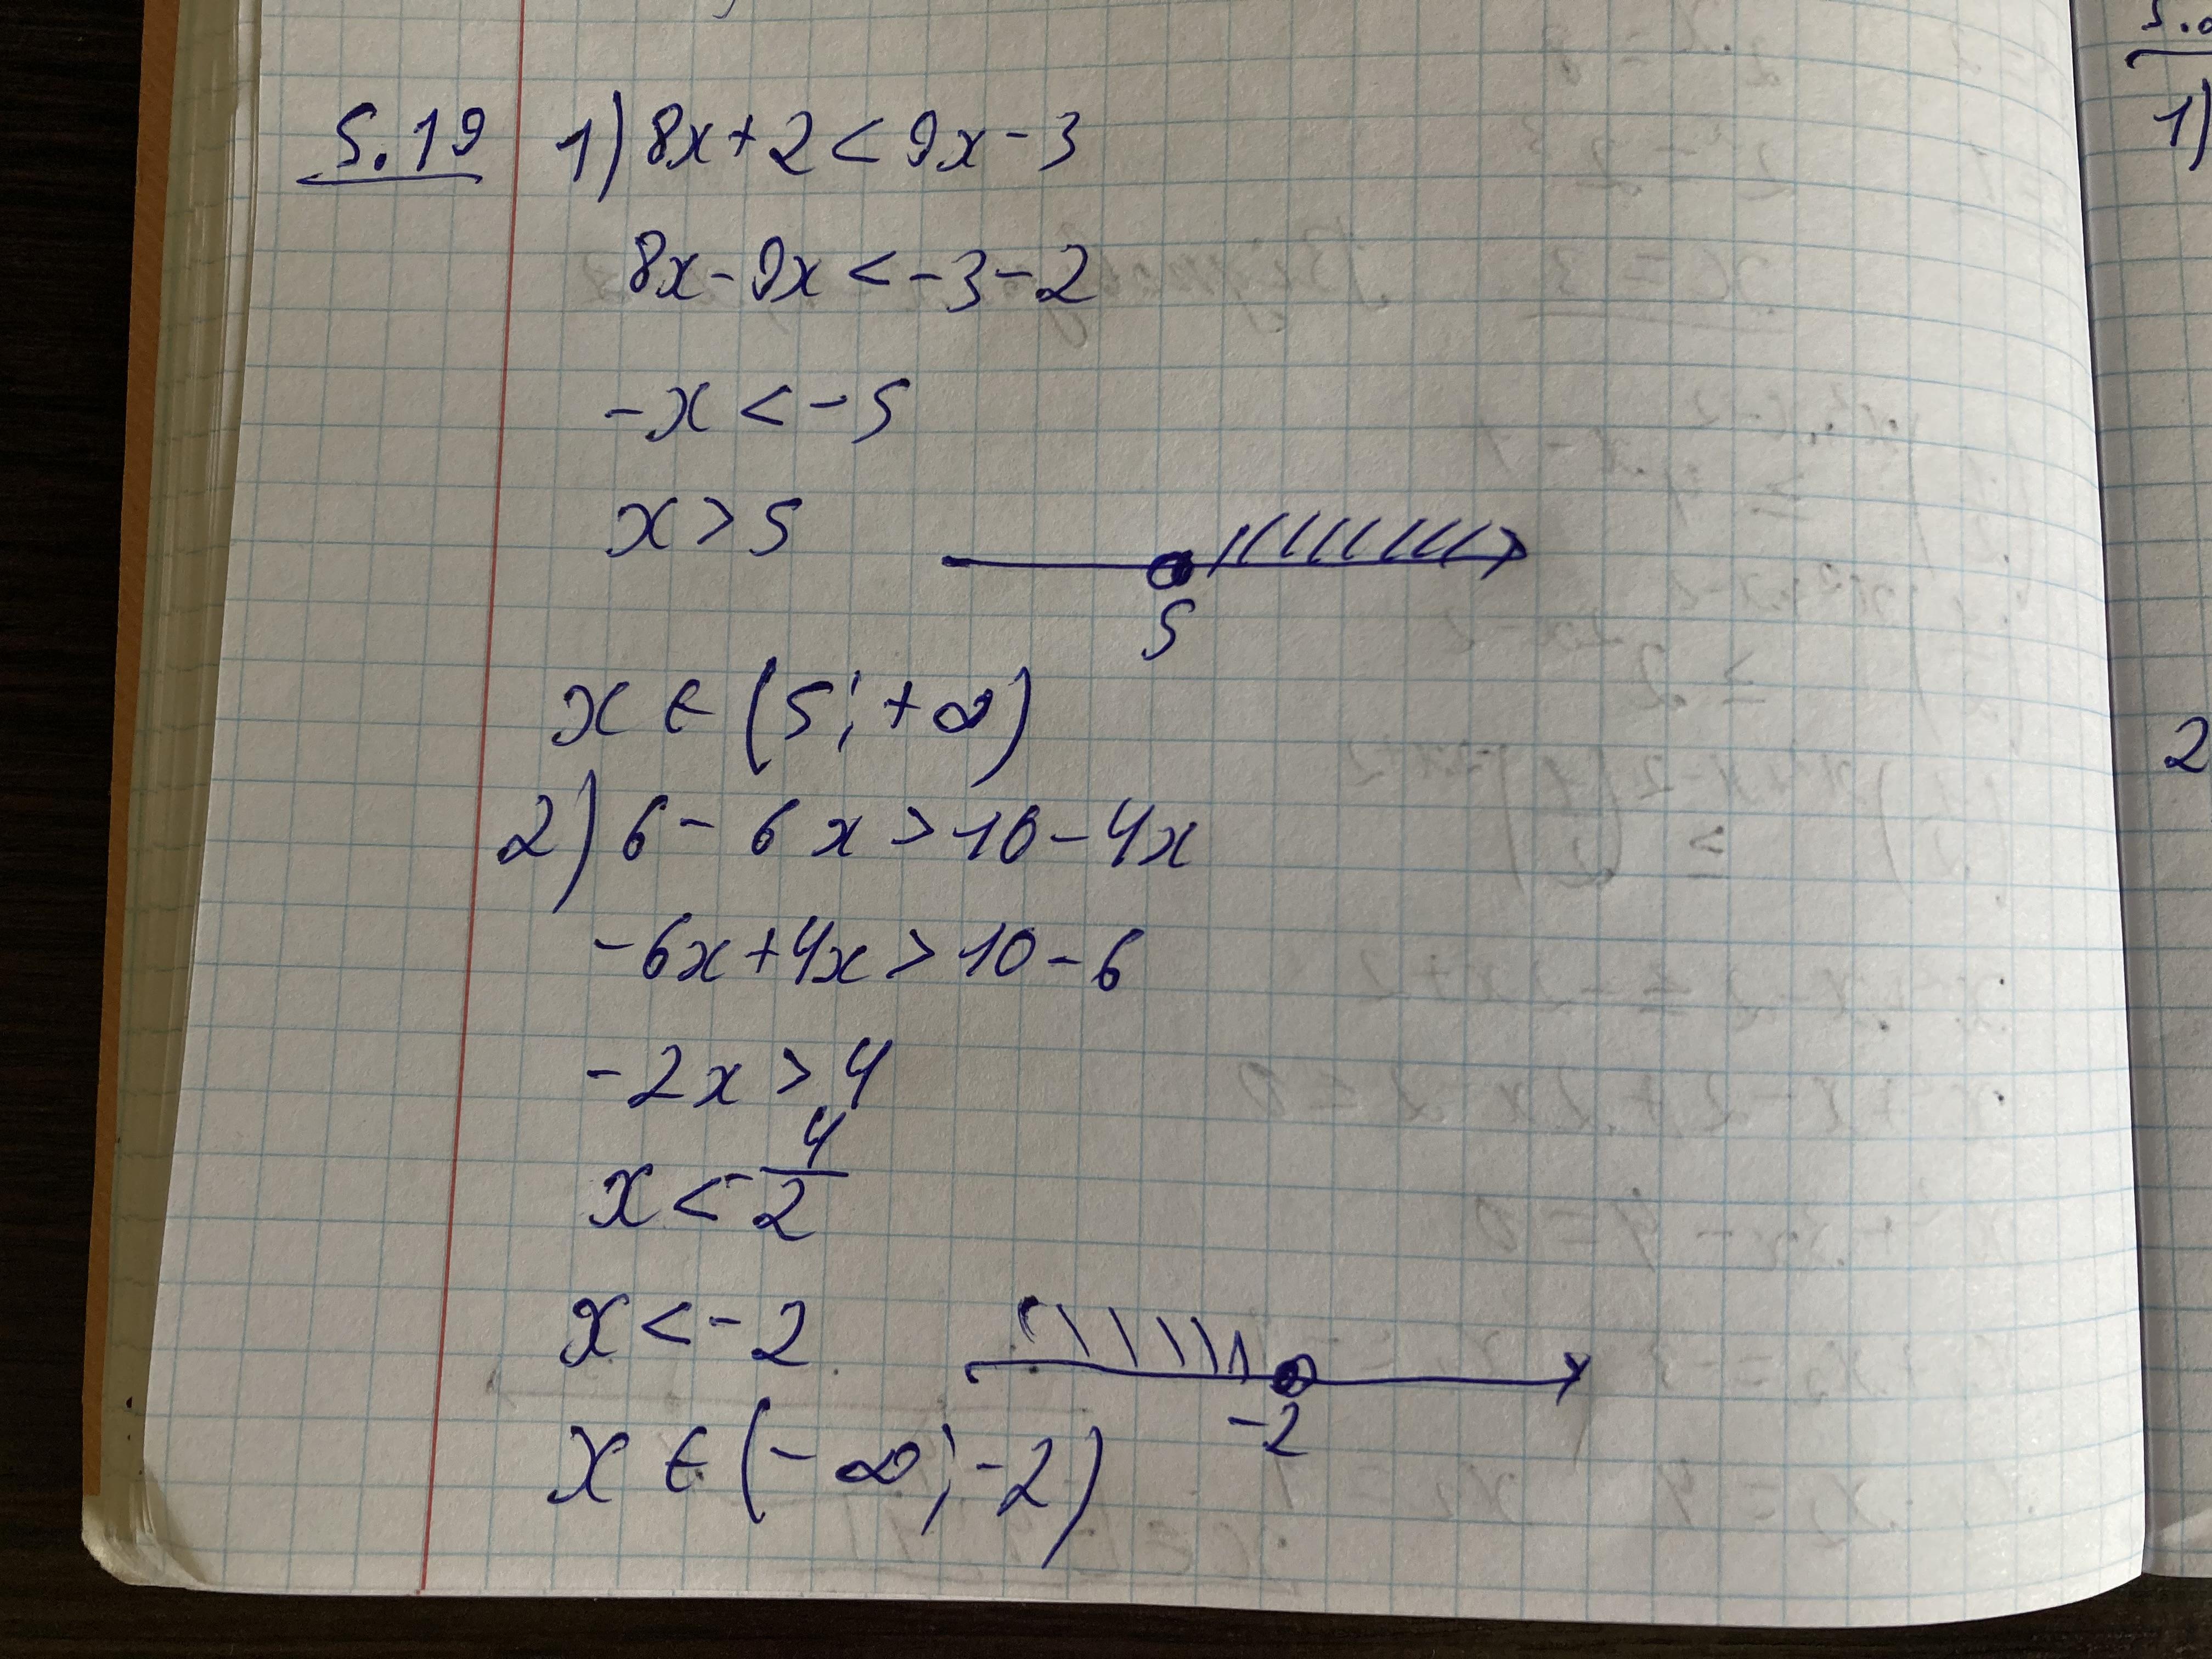 5.19 1) 8x+2<9x-3
8x-9x<-3-2
-x<-5
x>5
5
x∈(5;+∞)
2) 6-6x>10-4x
-6x+4x>10-6
-2x>4
x<-4/2
x<-2
-2
x∈(-∞;-2)
1)
2